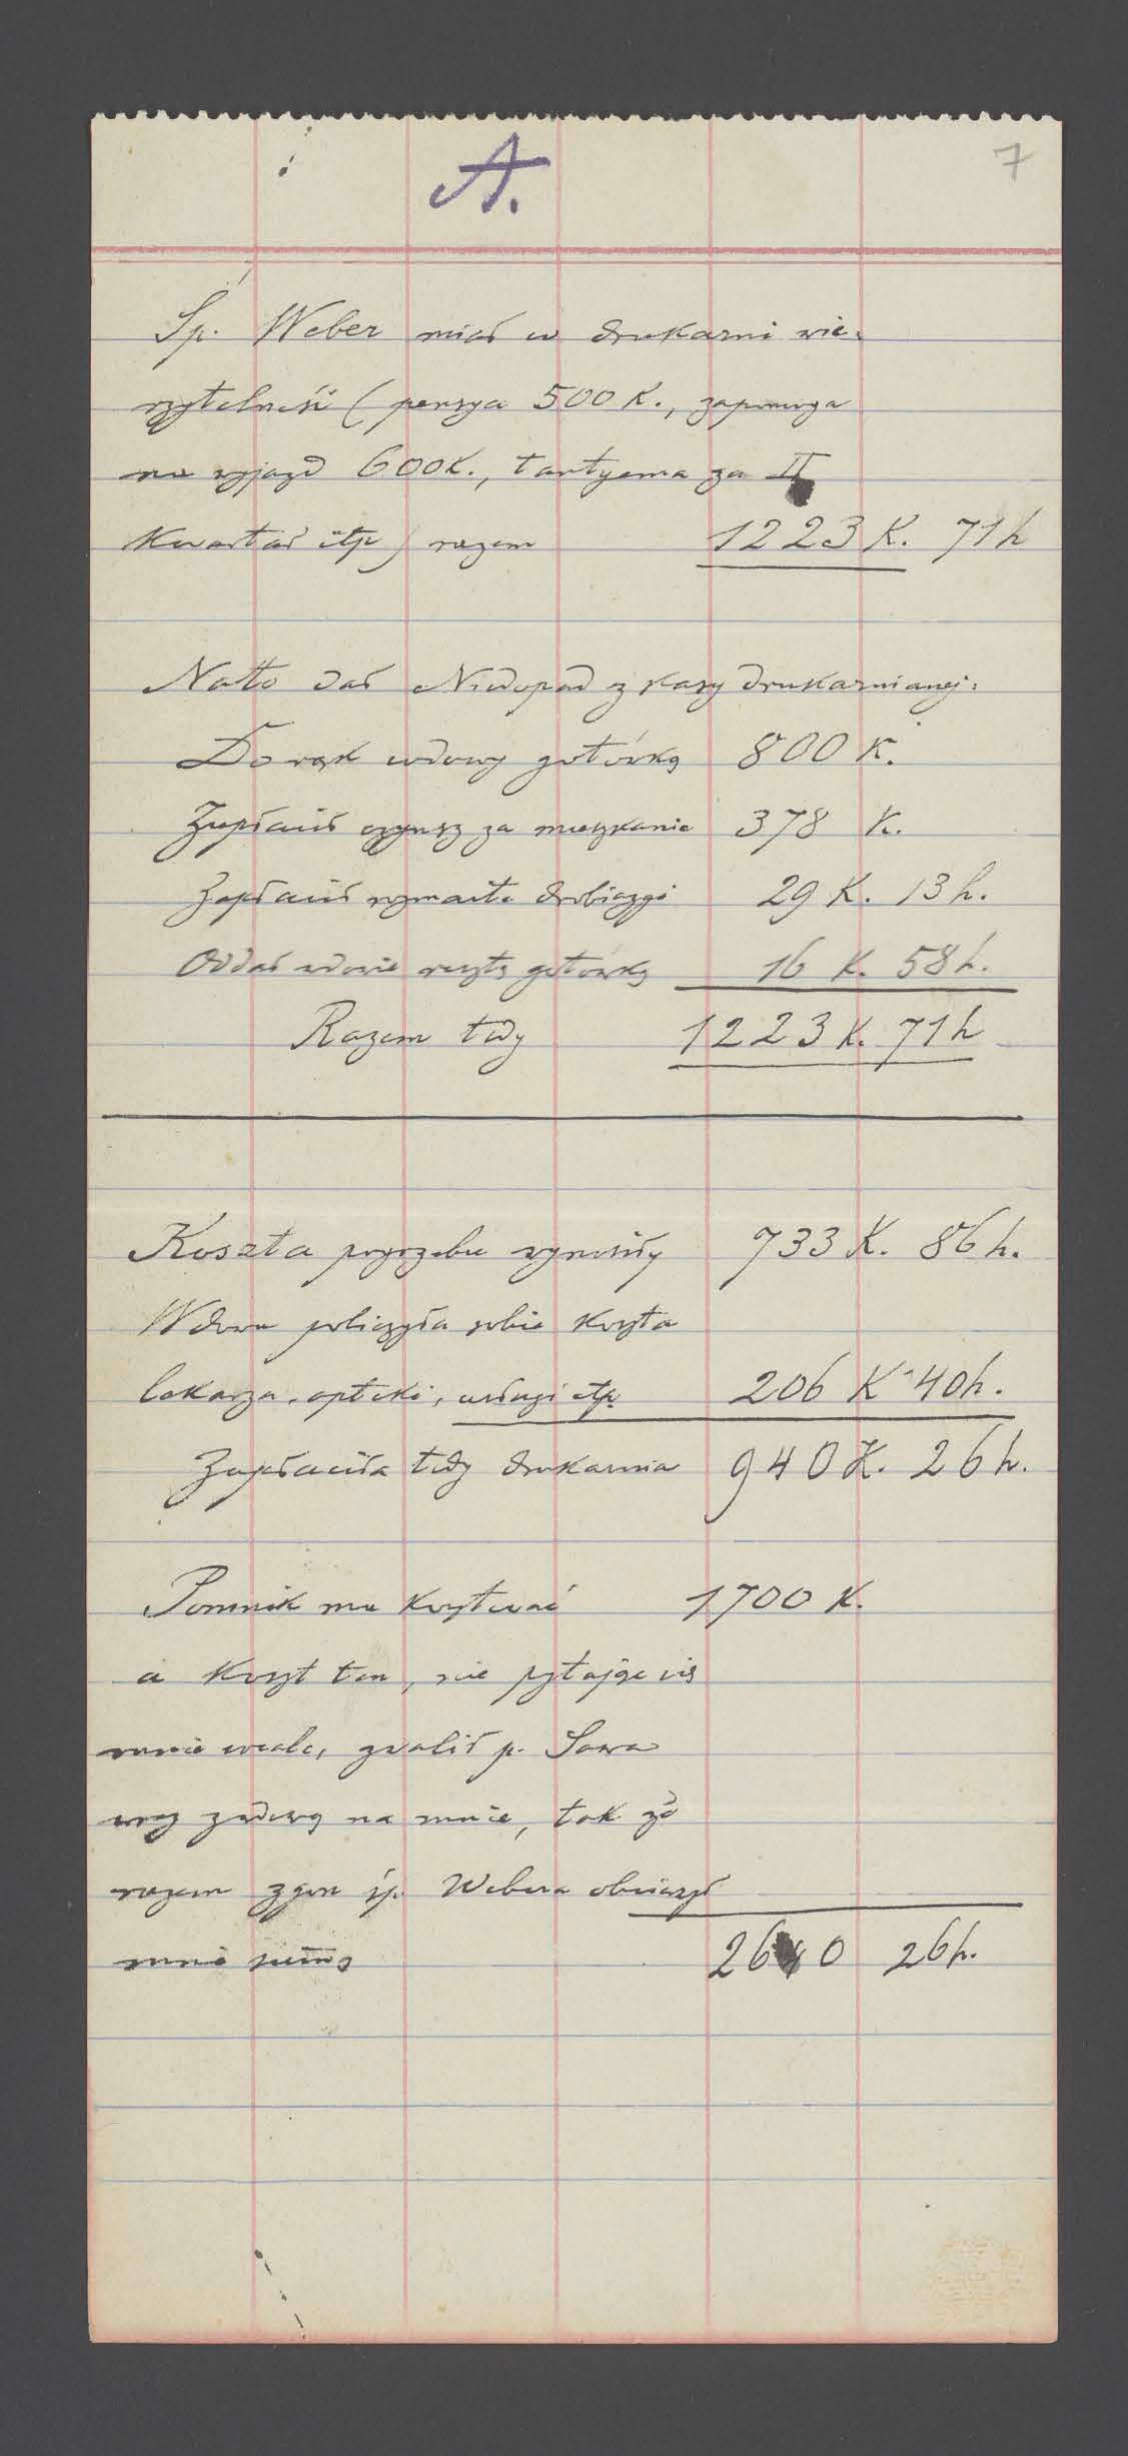 A.
7
Śp. Weber miał w drukarni wie-
rzytelność (pensya 500 K., zapomoga
na wyjazd 600K., tantyema za II
kwartał itp) razem 1223 K. 71 h
Na to dał Niedopad z kasy drukarnianej:
Do rąk wdowy gotówką 800 K.
Zapłacił czynsz za mieszkanie 378 K.
Zapłacił rozmaite drobiazgi 29 K. 13 h.
Oddał wdowie resztę gotówką 16 K. 58 h.
Razem tedy 1223 K. 71 h
Koszta pogrzebu wynosiły 733 K. 86 h.
Wdowa policzyła sobie koszta
lekarza, apteki, usługi itp. 206 K 40 h.
Zapłaciła tedy drukarnia 940 K. 26 h.
Pomnik ma kosztować 1700 K.
a koszt ten, nie pytając się
mnie wcale, zwalił p. Sowa
wraz z wdową na mnie, tak że
razem zgon śp. Webera obciążył
mnie sumą 2640 26 h.